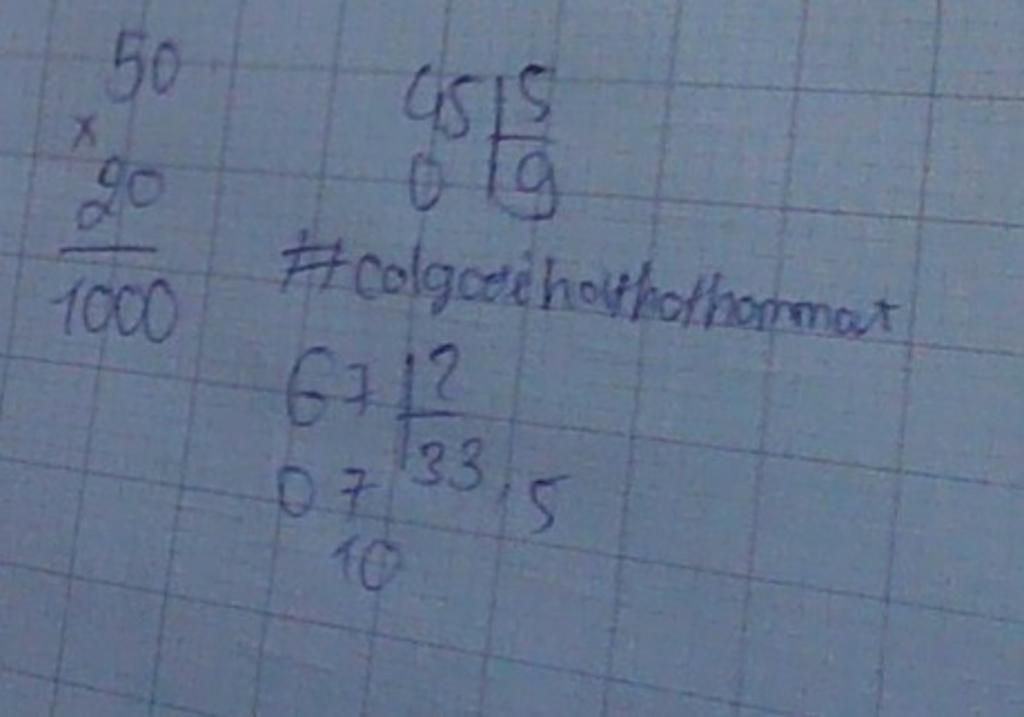 50
×
20
1000
45 | 5
0 | 9
67 | 2
07 | 33,5
10